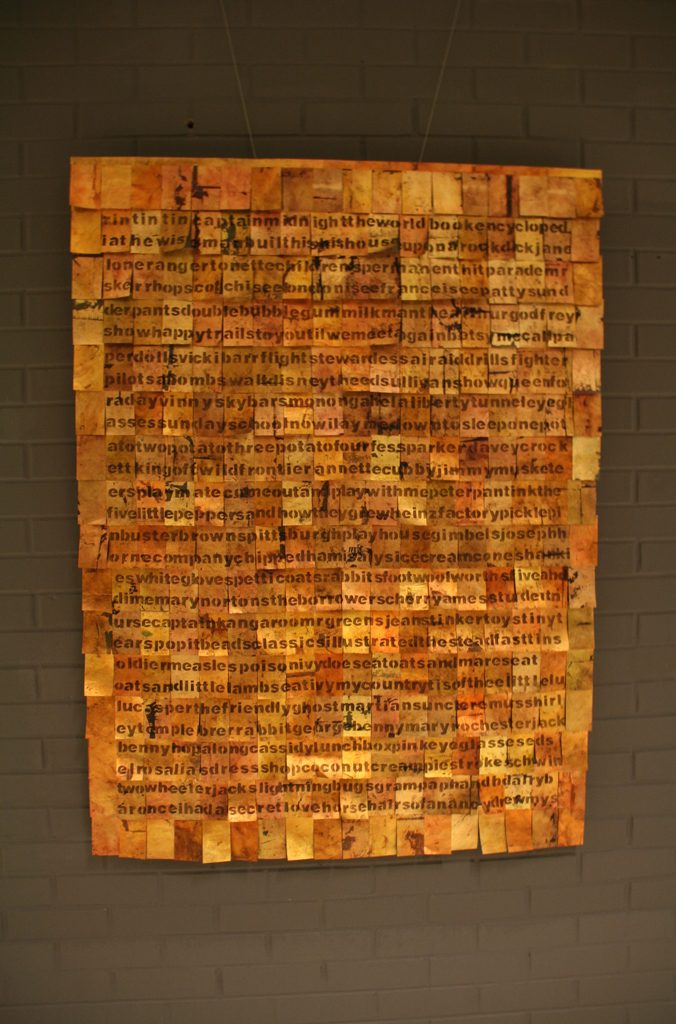 rintintincaptainmidnighttheworldbookencycloped
iathewismanbuilthishishouseuponarockdickjane
lonerangertonettechildrenspermanenthitparademr
skerrhopscotchiseelondoniseefranceiseepattysund
derpantsdoublebubblegummilkmantheearthurgodfrey
showhappytrailstoyoutilwemeetagainbatsymccallpa
perdollsvickibarrflightstewardessairaiddrillsfighter
pilotsabombswaltdisneytheedsullivanshowqueenfo
radayvinnyskybarsmonongahelalibertytunneleyegl
assessundayschoolnowilaymedowntosleeponepot
atotwopotatothreepotatofourfessparkerdaveycrock
ettkingoffwildfrontierannettecubbyjimmymuskete
ersplaymatecomeoutandplaywithmepeterpantinkthe
fivelittlepeppersandhowtheygrewheinzfactorypicklepi
nbusterbrownspittsburghplayhousegimbelsjosephh
ornecompanychippedhamislysicecreamconeshanki
eswhiteglovespetticoatsrabbitsfootwoolworthsfiveand
dimemarynortonstheborrowerscherryamesstudentn
ursecaptainkangaroomrgreensjeanstinkertoystinyt
earspopitbeadsclassicsillustratedthesteadfasttins
oldiermeaslespoisonivydoeseatoatsandmareseat
oatsandlittlelambseativymycountrytisoftheelittlelu
lucasperthefriendlyghostmartiansuncleremusshirl
eytemplebrerrabbitgeorgebennymaryrochesterjack
bennyhopalongcassidylunchboxpinkeyeglasseseds
elrosaliasdressshopcoconutcreampiestrokeschwin
twowheelerjackslightningbugsgrampaphandbdairyb
aronceihadasecretlovehorsehairsofanancydrewnys